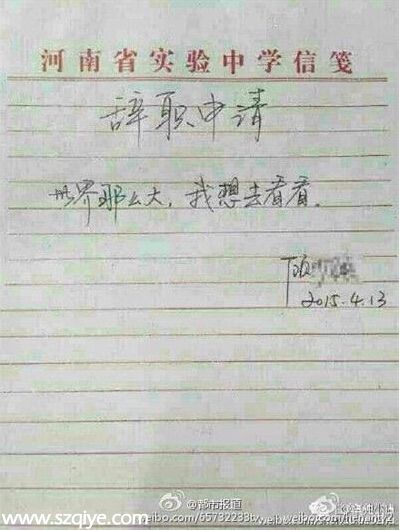 河南省实验中学信笺
辞职申请
世界那么大，我想去看看。
顾
2015.4.13
@都市报道
www.szqiye.com
weibo.com/65732233